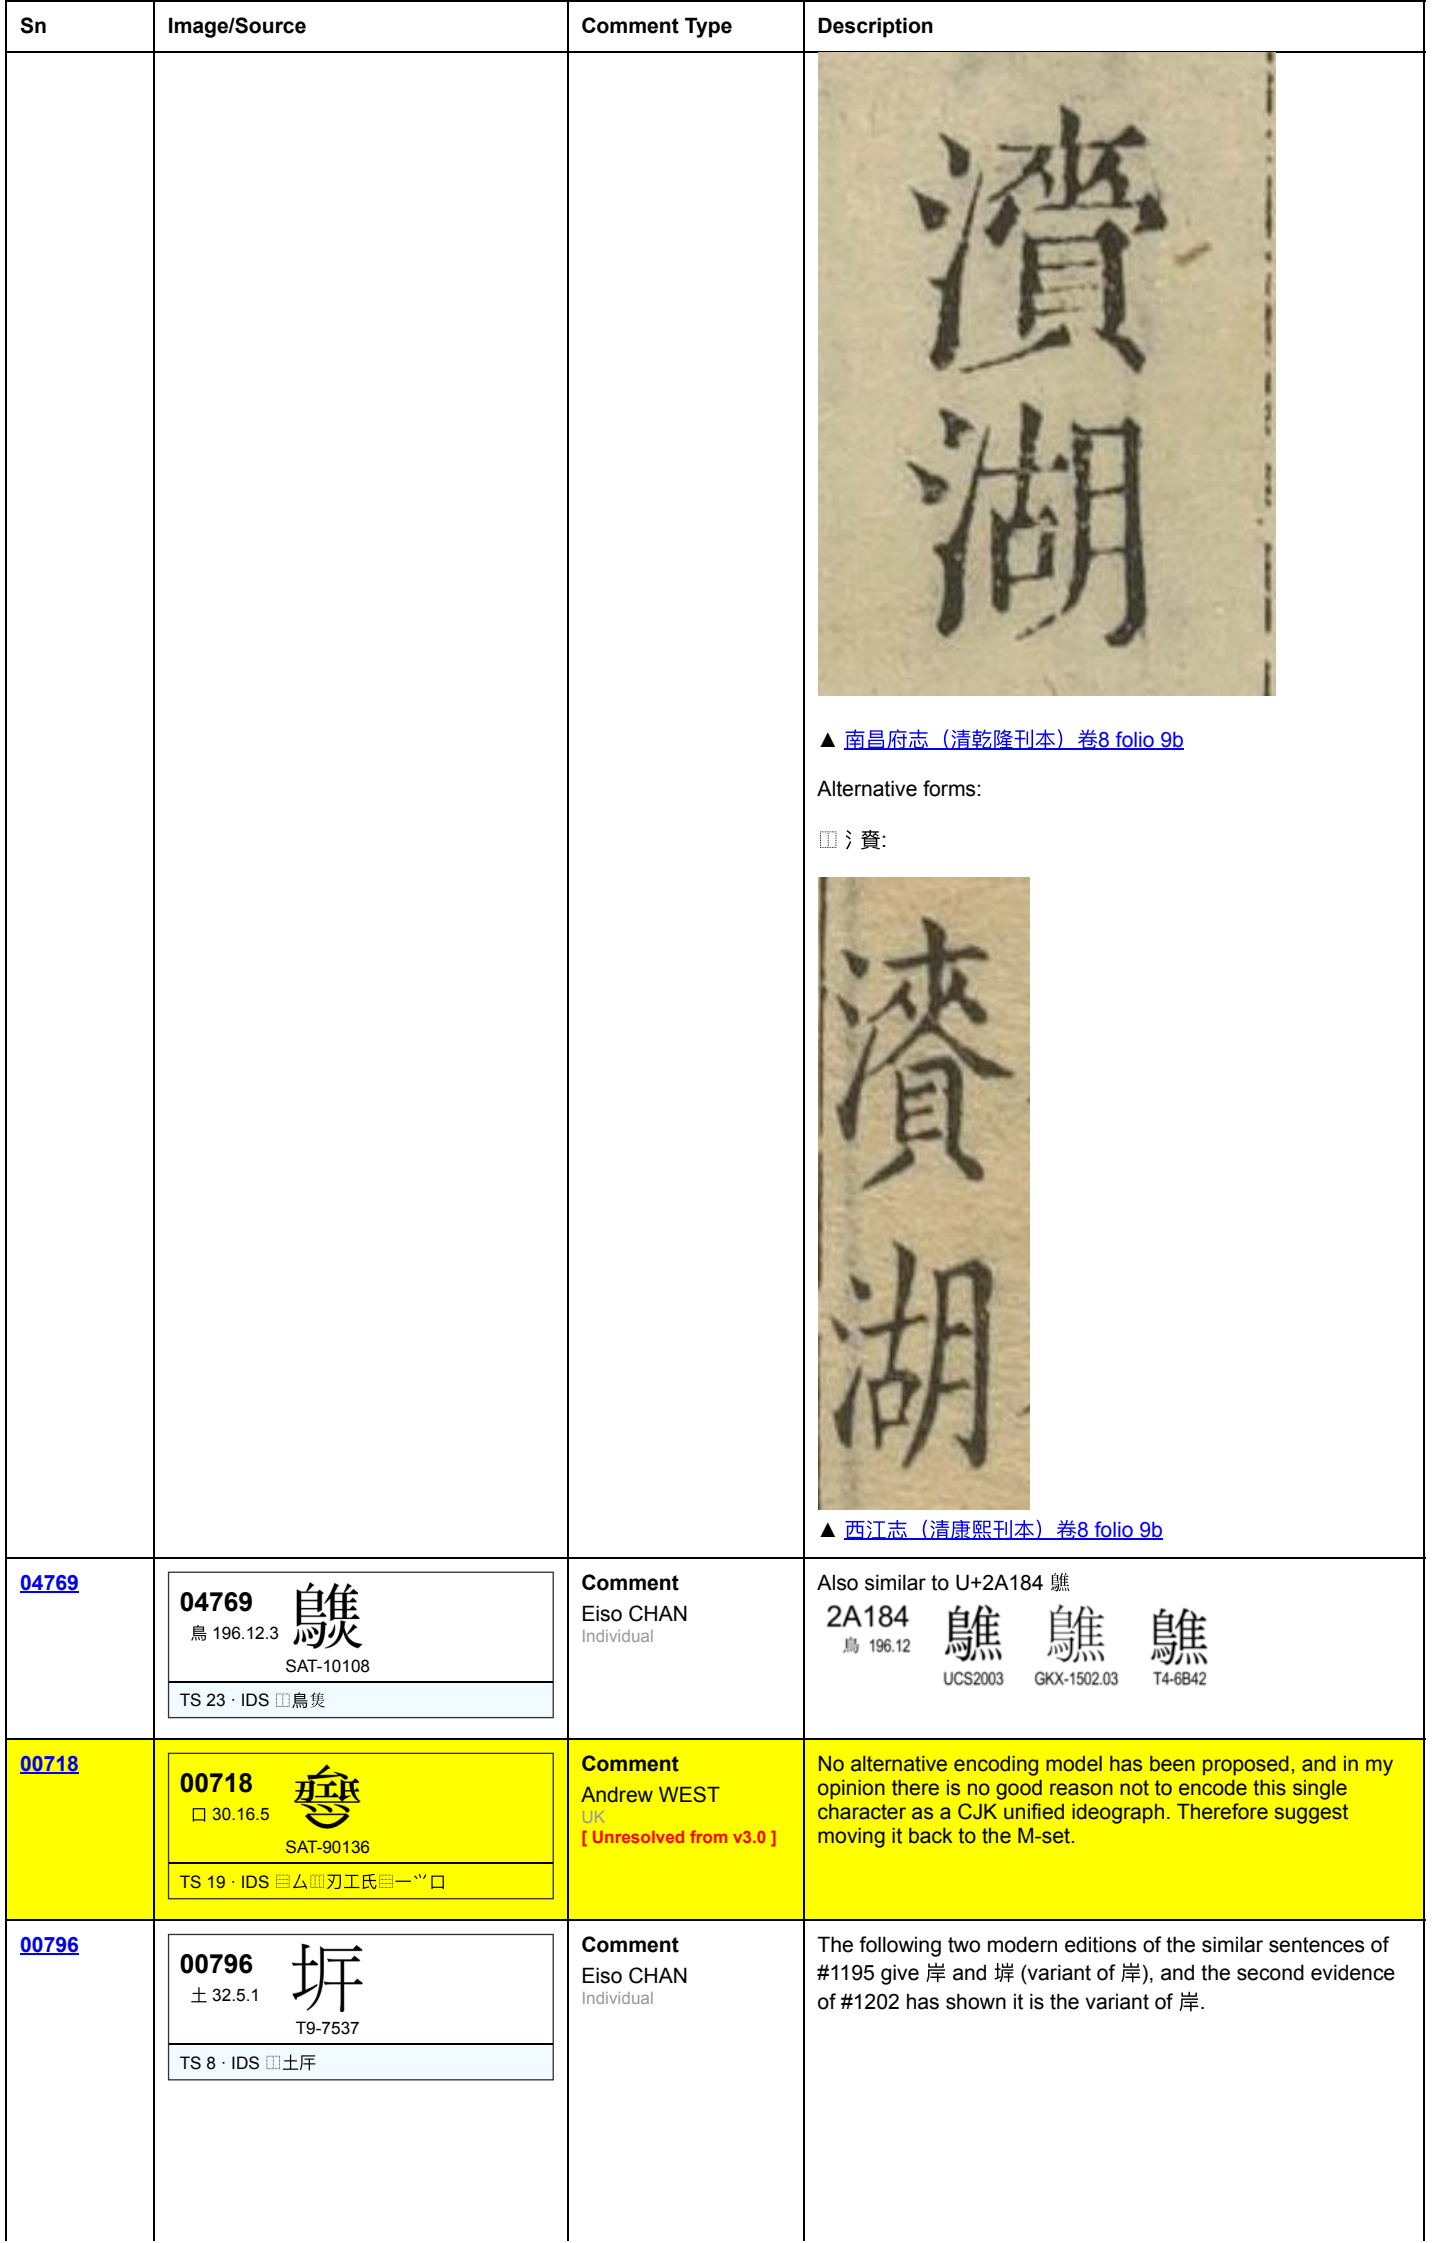 Sn Image/Source Comment Type Description
湖
▲ 南昌府志（清乾隆刊本）卷8 folio 9b
Alternative forms:
⿰氵賚:
湖
▲ 西江志（清康熙刊本）卷8 folio 9b
04769
04769
鳥 196.12.3
SAT-10108
TS 23 · IDS ⿰鳥𤆍
Comment
Eiso CHAN
Individual
Also similar to U+2A184 𪆄
2A184
鳥 196.12
UCS2003 GKX-1502.03 T4-6B42
00718
00718
口 30.16.5
SAT-90136
TS 19 · IDS ⿳亼⿲刃工氏⿳一⺍口
Comment
Andrew WEST
UK
[ Unresolved from v3.0 ]
No alternative encoding model has been proposed, and in my
opinion there is no good reason not to encode this single
character as a CJK unified ideograph. Therefore suggest
moving it back to the M-set.
00796
00796
土 32.5.1
T9-7537
TS 8 · IDS ⿰土厈
Comment
Eiso CHAN
Individual
The following two modern editions of the similar sentences of
#1195 give 岸 and 垾 (variant of 岸), and the second evidence
of #1202 has shown it is the variant of 岸.